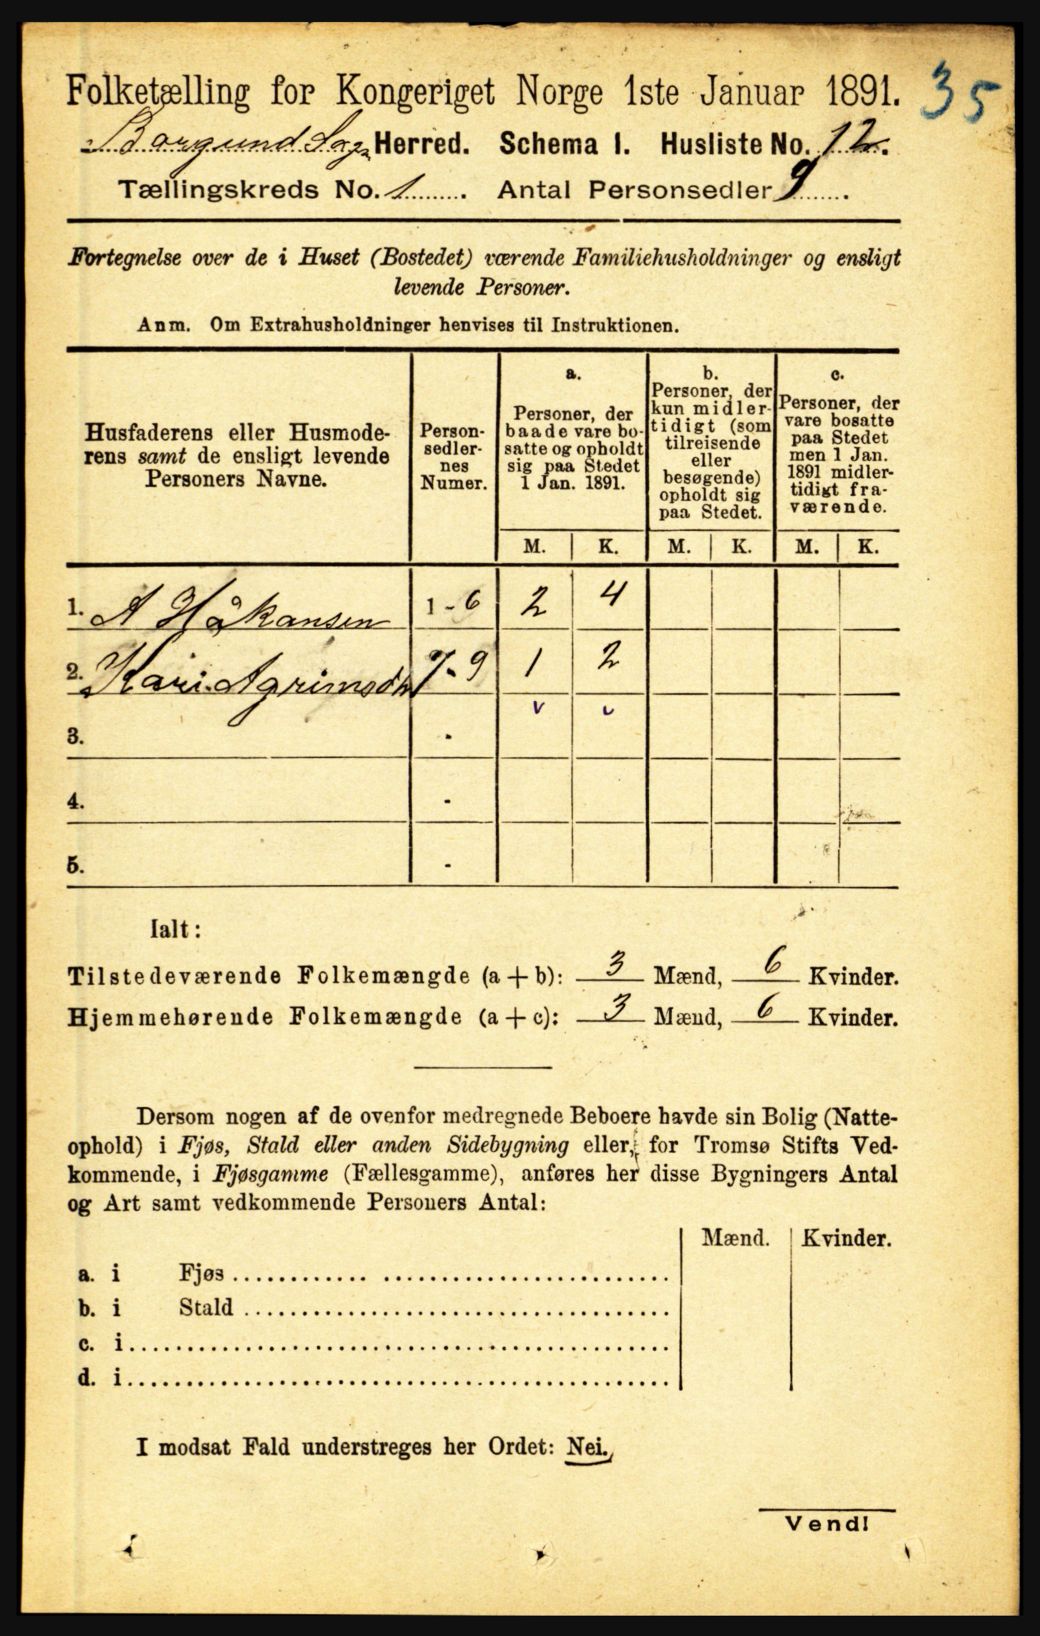 Folketælling for Kongeriget Norge 1ste Januar 1891.
35
Borgund Sogn Herred. Schema I. Husliste No. 12.
Tællingskreds No. 1. Antal Personsedler 9.
Fortegnelse over de i Huset (Bostedet) værende Familiehusholdninger og ensligt
levende Personer.
Anm. Om Extrahusholdninger henvises til Instruktionen.
Husfaderens eller Husmode-
rens samt de ensligt levende
Personers Navne.
Person-
sedler-
nes
Numer.
a.
Personer, der
baade vare bo-
satte og opholdt
sig paa Stedet
1 Jan. 1891.
b.
Personer, der
kun midler-
tidigt (som
tilreisende
eller
besøgende)
opholdt sig
paa Stedet.
c.
Personer, der
vare bosatte
paa Stedet
men 1 Jan.
1891 midler-
tidigt fra-
værende.
M. K. M. K. M. K.
1. A Håkansen 1-6 2 4
2. Kari Agrimsdtr 7-9 1 2
3. -
4. -
5. -
Ialt:
Tilstedeværende Folkemængde (a + b): 3 Mænd, 6 Kvinder.
Hjemmehørende Folkemængde (a + c): 3 Mænd, 6 Kvinder.
Dersom nogen af de ovenfor medregnede Beboere havde sin Bolig (Natte-
ophold) i Fjøs, Stald eller anden Sidebygning eller, for Tromsø Stifts Ved-
kommende, i Fjøsgamme (Fællesgamme), anføres her disse Bygningers Antal
og Art samt vedkommende Personers Antal:
Mænd. Kvinder.
a. i Fjøs
b. i Stald
c. i
d. i
I modsat Fald understreges her Ordet: Nei.
Vend!